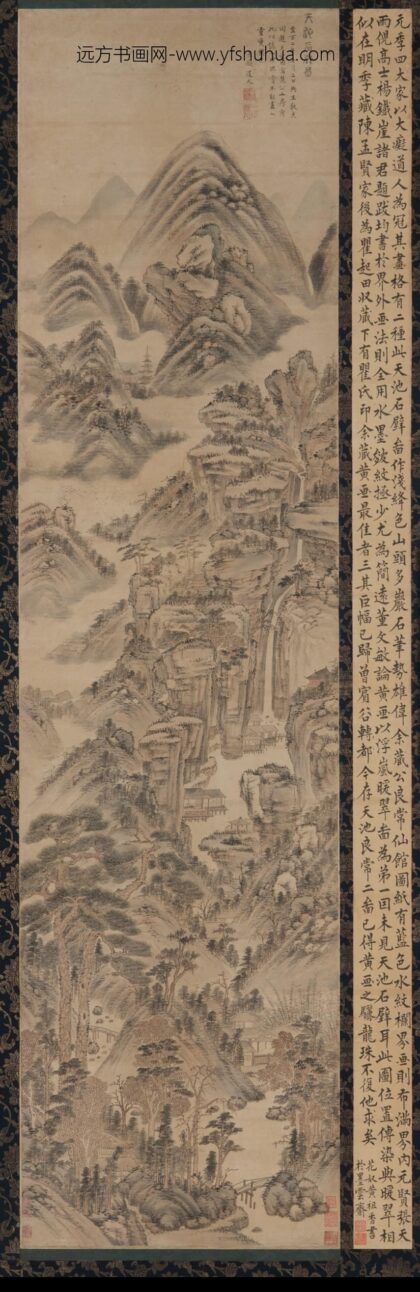 远方书画网-www.yfshuhua.com
天池石壁圖
元季四大家以大癡道人為冠其畫格有二種此天池石壁啚作淺絳色山頭多巖石筆勢雄偉余藏公良常仙館圖紙有藍色水紋欄界画則布滿界內元賢張天
雨倪高士楊鐵崖諸君題跋均書於界外画法則全用水墨皴紋極少尤為簡遠董文敏論黃画以浮嵐暖翠啚為第一因未見天池石壁耳此圖位置傳染與暖翠相
似在明季藏陳孟賢家後為瞿起田收藏下有瞿氏印余藏黃画最佳者三其巨幅已歸曾賓谷轉都今存天池良常二啚已得黃画之驪龍珠不復他求矣
花奴黃祖香書
於墨雲齋